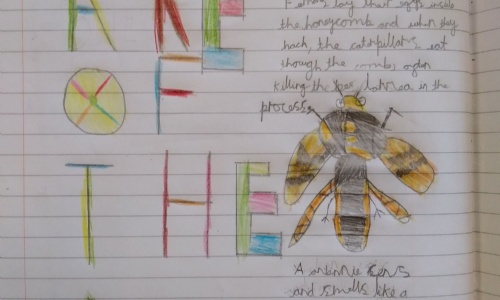 ARE
OF
THE
lay their eggs inside
the honeycomb and when they
hach, the caterpillars eat
though the combs ogen
killing the bee larvea in the
process.
A antenne sens
and smells like a